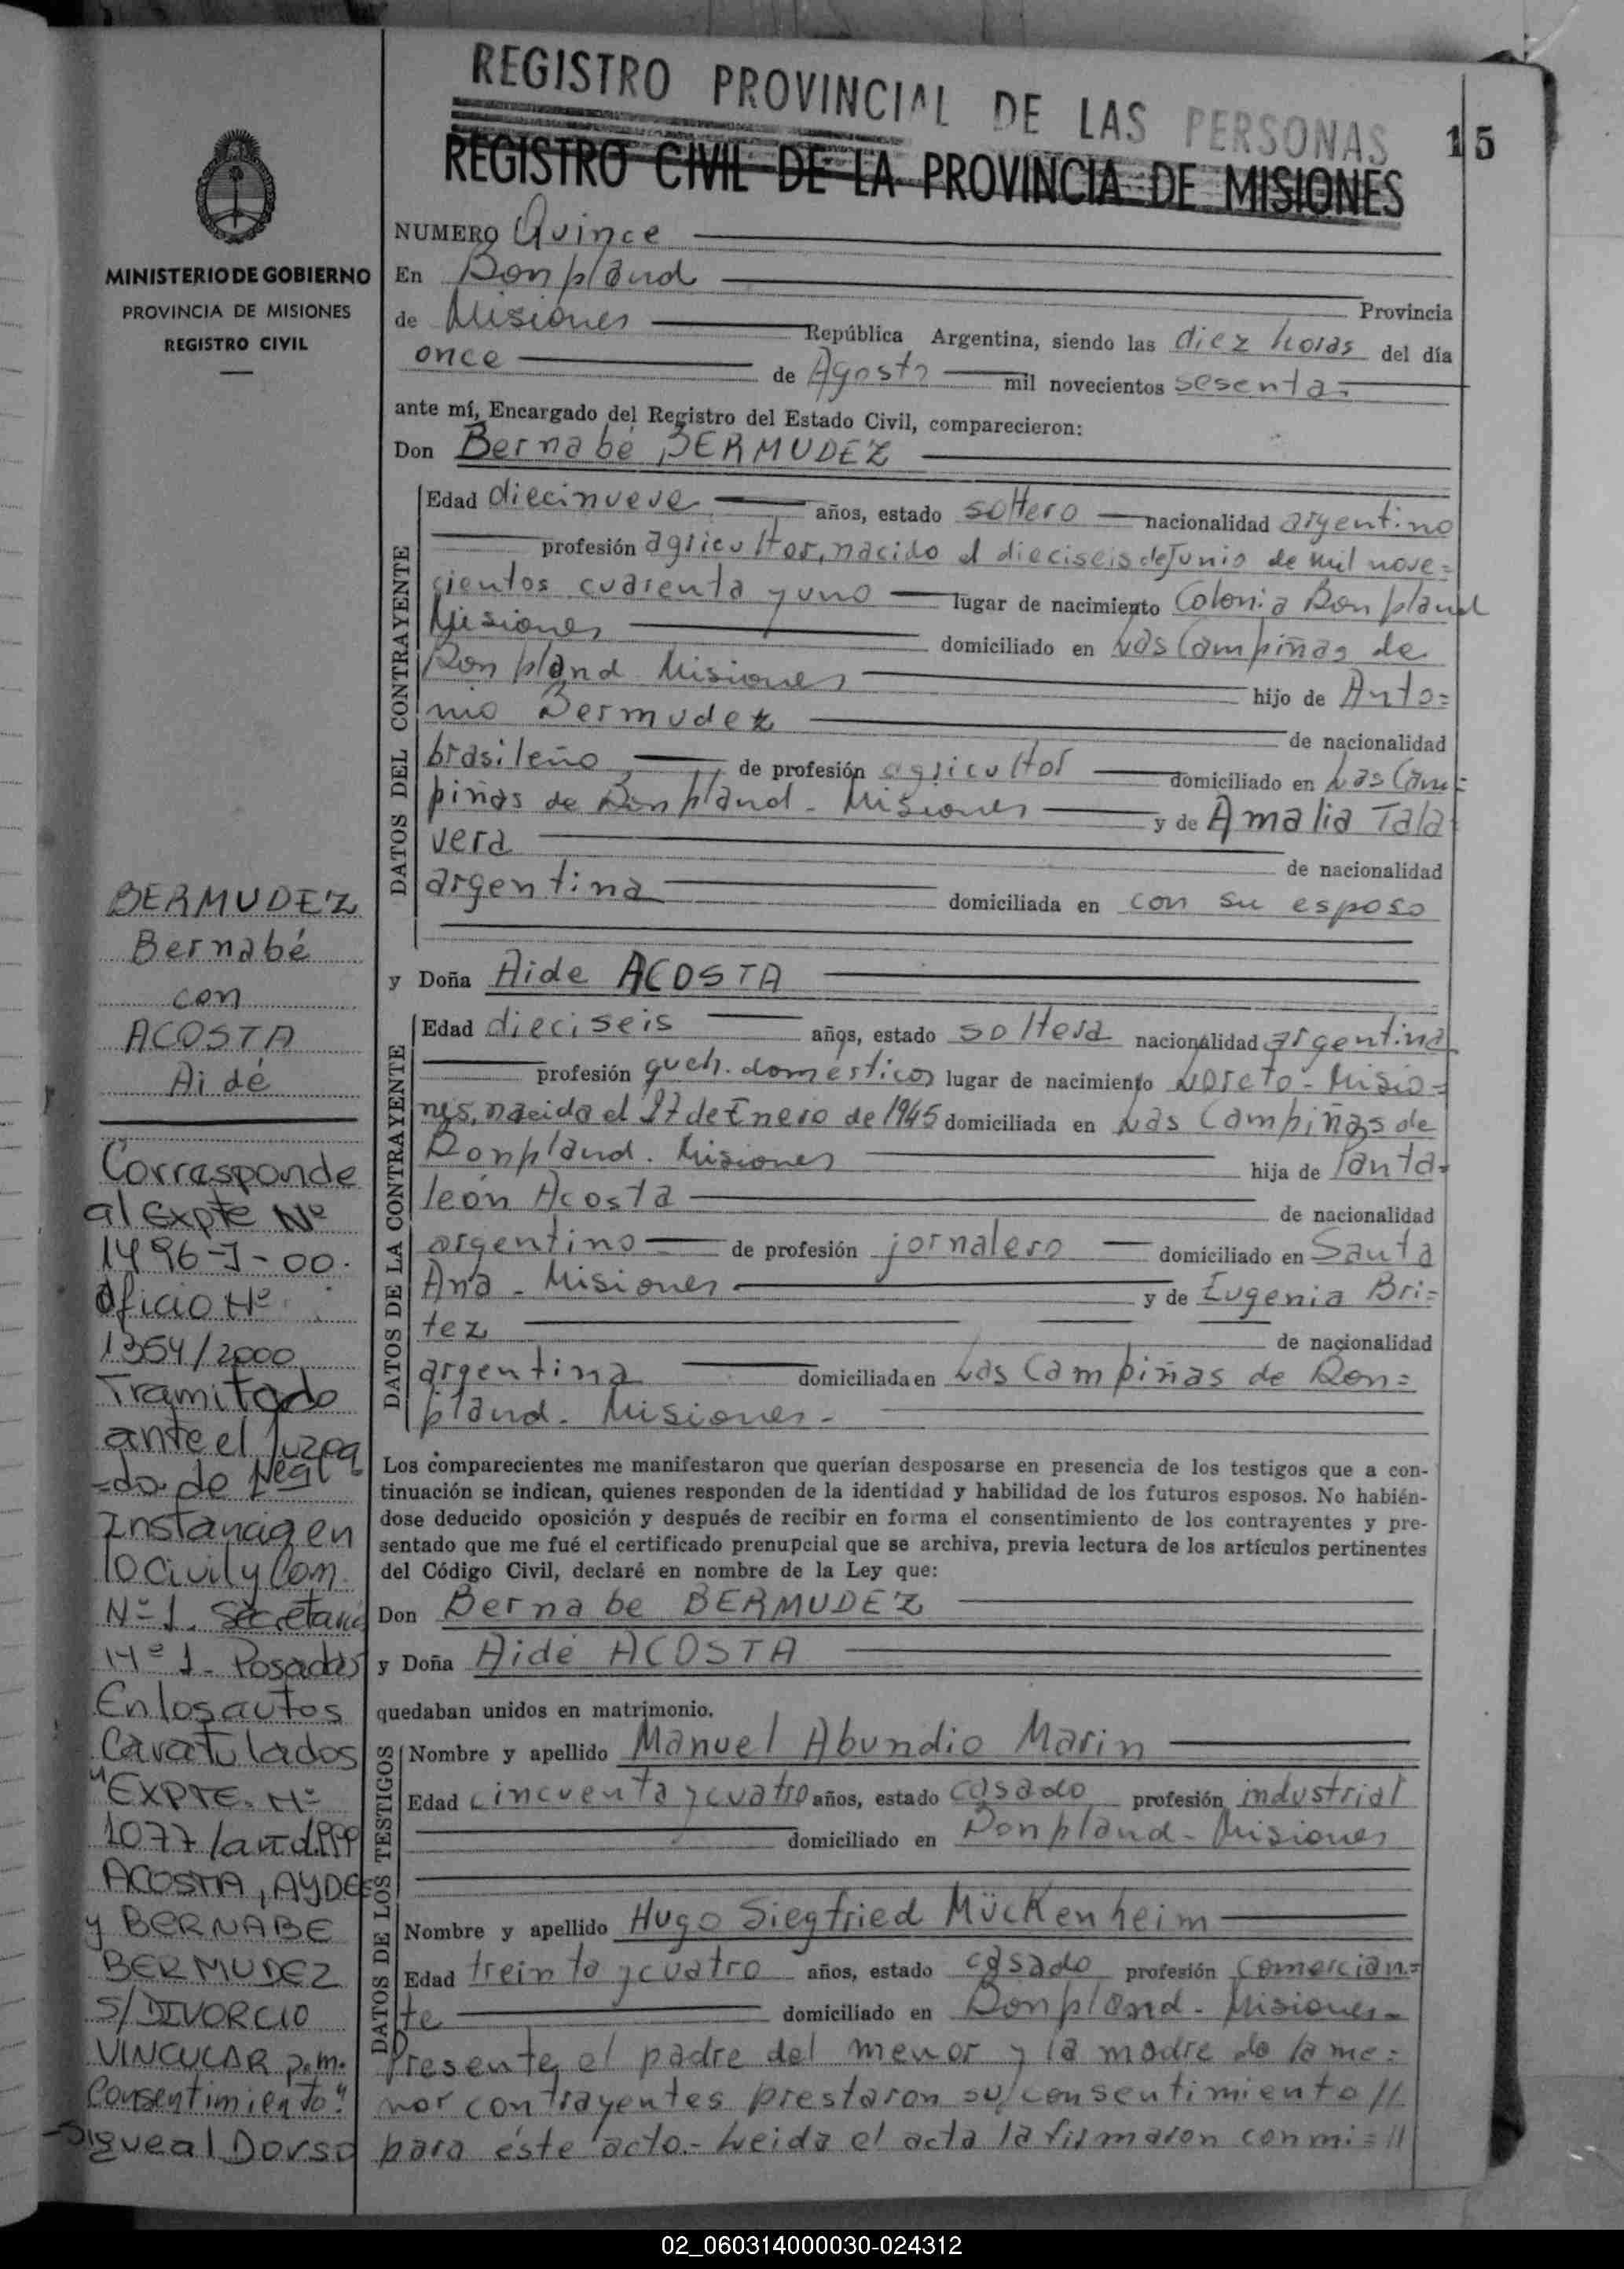 REGISTRO PROVINCIAL DE LAS PERSONAS
15
REGISTRO CIVIL DE LA PROVINCIA DE MISIONES
MINISTERIO DE GOBIERNO
PROVINCIA DE MISIONES
REGISTRO CIVIL
BERMUDEZ
Bernabé
con
ACOSTA
Aidé
Corresponde
al Expte Nº
1496-J-00.
Oficio Nº
1354/2000
Tramitado
ante el Juzga
=do de
Instancia en
lo Civil y Com.
Nº 1. Secretaria
Nº 1- Posadas
En los autos
Caratulados
"EXPTE. Nº
1077/
ACOSTA, AYDE
y BERNABE
BERMUDEZ
S/DIVORCIO
VINCULAR p.m.
Consentimiento"
-Sigue al Dorso
NUMERO Quince
En Bonpland
Provincia
de Misiones República Argentina, siendo las diez horas del día
once de Agosto mil novecientos sesenta.
ante mí, Encargado del Registro del Estado Civil, comparecieron:
Don Bernabé BERMUDEZ
DATOS DEL CONTRAYENTE
Edad diecinueve años, estado soltero nacionalidad argentino
profesión agricultor, nacido el dieciseis de Junio de mil nove=
cientos cuarenta y uno lugar de nacimiento Colonia Bonpland
Misiones domiciliado en Las Campiñas de
Bonpland Misiones hijo de Anto=
nio Bermudez de nacionalidad
brasileño, de profesión agricultor domiciliado en Las Cam=
piñas de Bonpland - Misiones y de Amalia Tala
vera de nacionalidad
argentina domiciliada en con su esposo
y Doña Aide ACOSTA
DATOS DE LA CONTRAYENTE
Edad dieciseis años, estado soltera nacionalidad argentina
profesión queh. domésticos lugar de nacimiento Loreto - Misio=
nes, nacida el 27 de Enero de 1945 domiciliada en Las Campiñas de
Bonpland. Misiones hija de Panta=
león Acosta de nacionalidad
argentino de profesión jornalero domiciliado en Santa
Ana - Misiones y de Eugenia Bri=
tez de nacionalidad
argentina domiciliada en Las Campiñas de Bon=
pland - Misiones -
Los comparecientes me manifestaron que querían desposarse en presencia de los testigos que a con-
tinuación se indican, quienes responden de la identidad y habilidad de los futuros esposos. No habién-
dose deducido oposición y después de recibir en forma el consentimiento de los contrayentes y pre-
sentado que me fué el certificado prenupcial que se archiva, previa lectura de los artículos pertinentes
del Código Civil, declaré en nombre de la Ley que:
Don Bernabe BERMUDEZ
y Doña Aidé ACOSTA
quedaban unidos en matrimonio.
DATOS DE LOS TESTIGOS
Nombre y apellido Manuel Abundio Marin
Edad cincuenta y cuatro años, estado casado profesión industrial
domiciliado en Bonpland - Misiones
Nombre y apellido Hugo Siegfried Mückenheim
Edad treinta y cuatro años, estado casado profesión comercian=
te domiciliado en Bonpland - Misiones -
Presente el padre del menor y la madre de la me=
nor contrayentes prestaron su consentimiento //
para éste acto.- Leida el acta la firmaron conmi= //
02_060314000030-024312